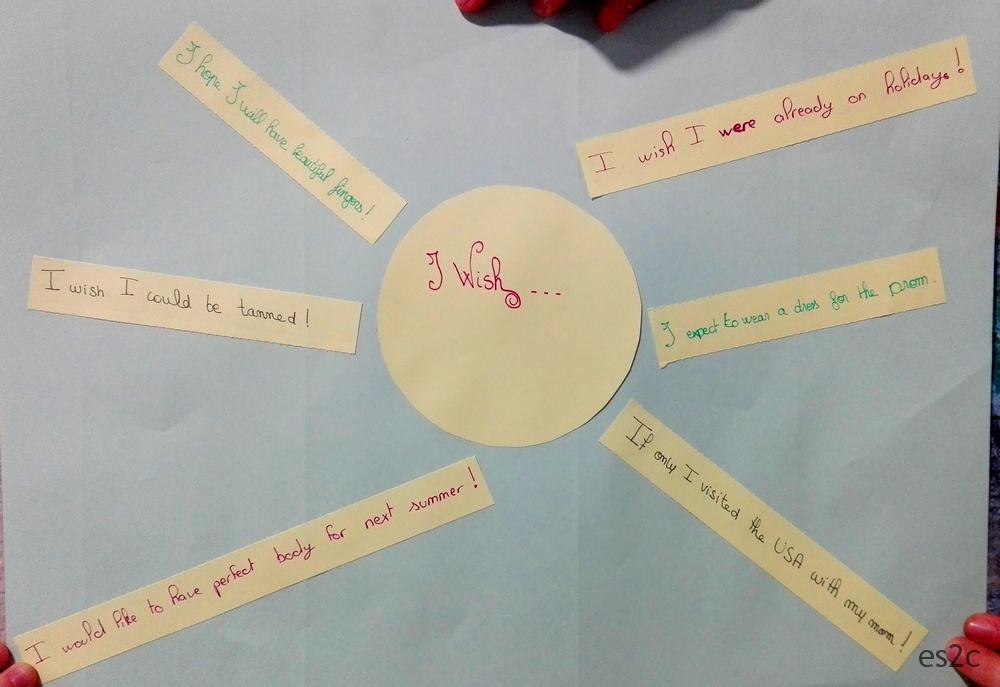 I Wish...
I hope I will have beautiful fingers!
I wish I were already on holidays!
I wish I could be tanned!
I expect to wear a dress for the prom.
I would like to have perfect body for next summer!
If only I visited the USA with my mom!
es2c